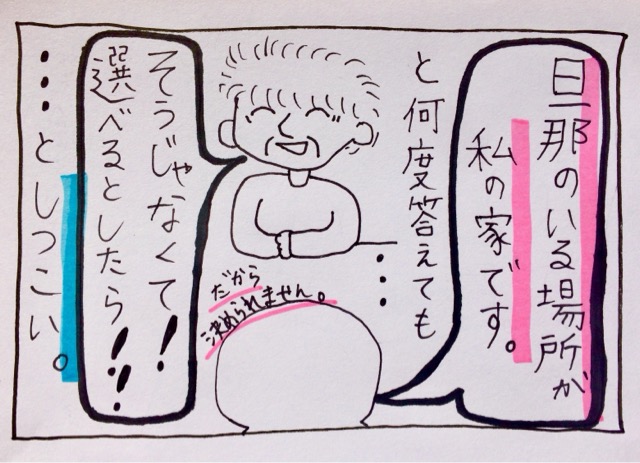 旦那のいる場所が
私の家です。
と何度答えても
・・・
だから
決められません。
そうじゃなくて！
選べるとしたら！！
・・・としつこい。